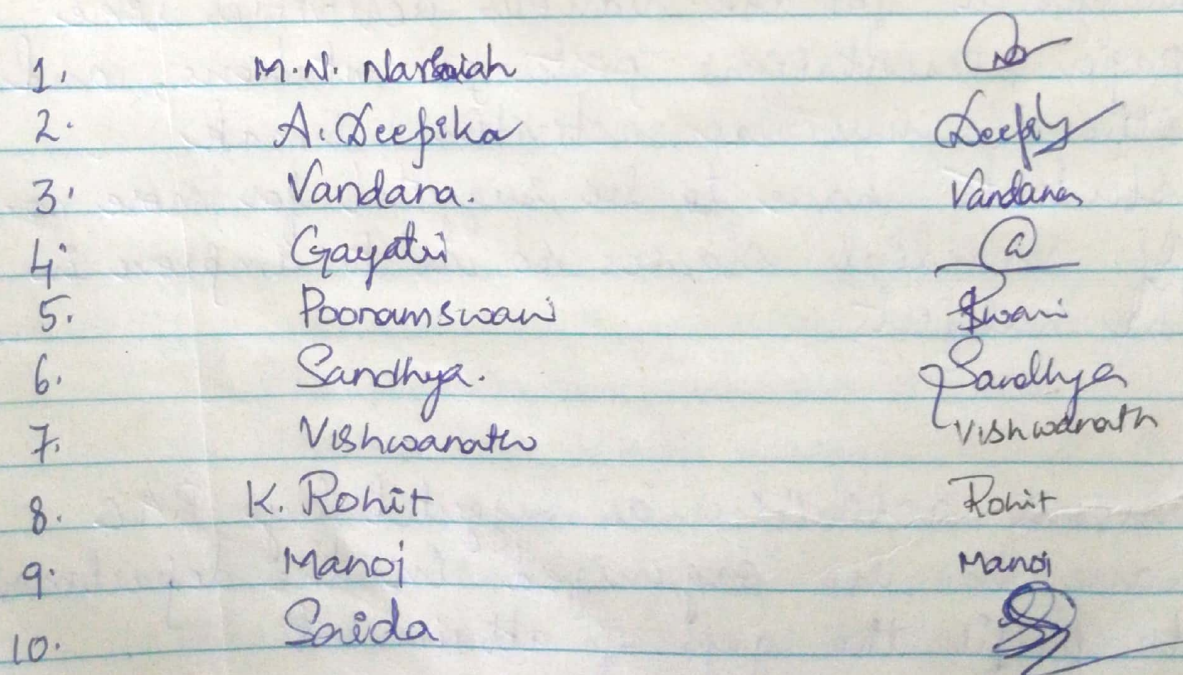 1. M.N. Narsaiah
2. A. Deepika Deepika
3. Vandana. Vandana
4. Gayatri
5. Poonamswari Swari
6. Sandhya. Sandhya
7. Vishwanath Vishwanath
8. K. Rohit Rohit
9. Manoj Manoj
10. Saida